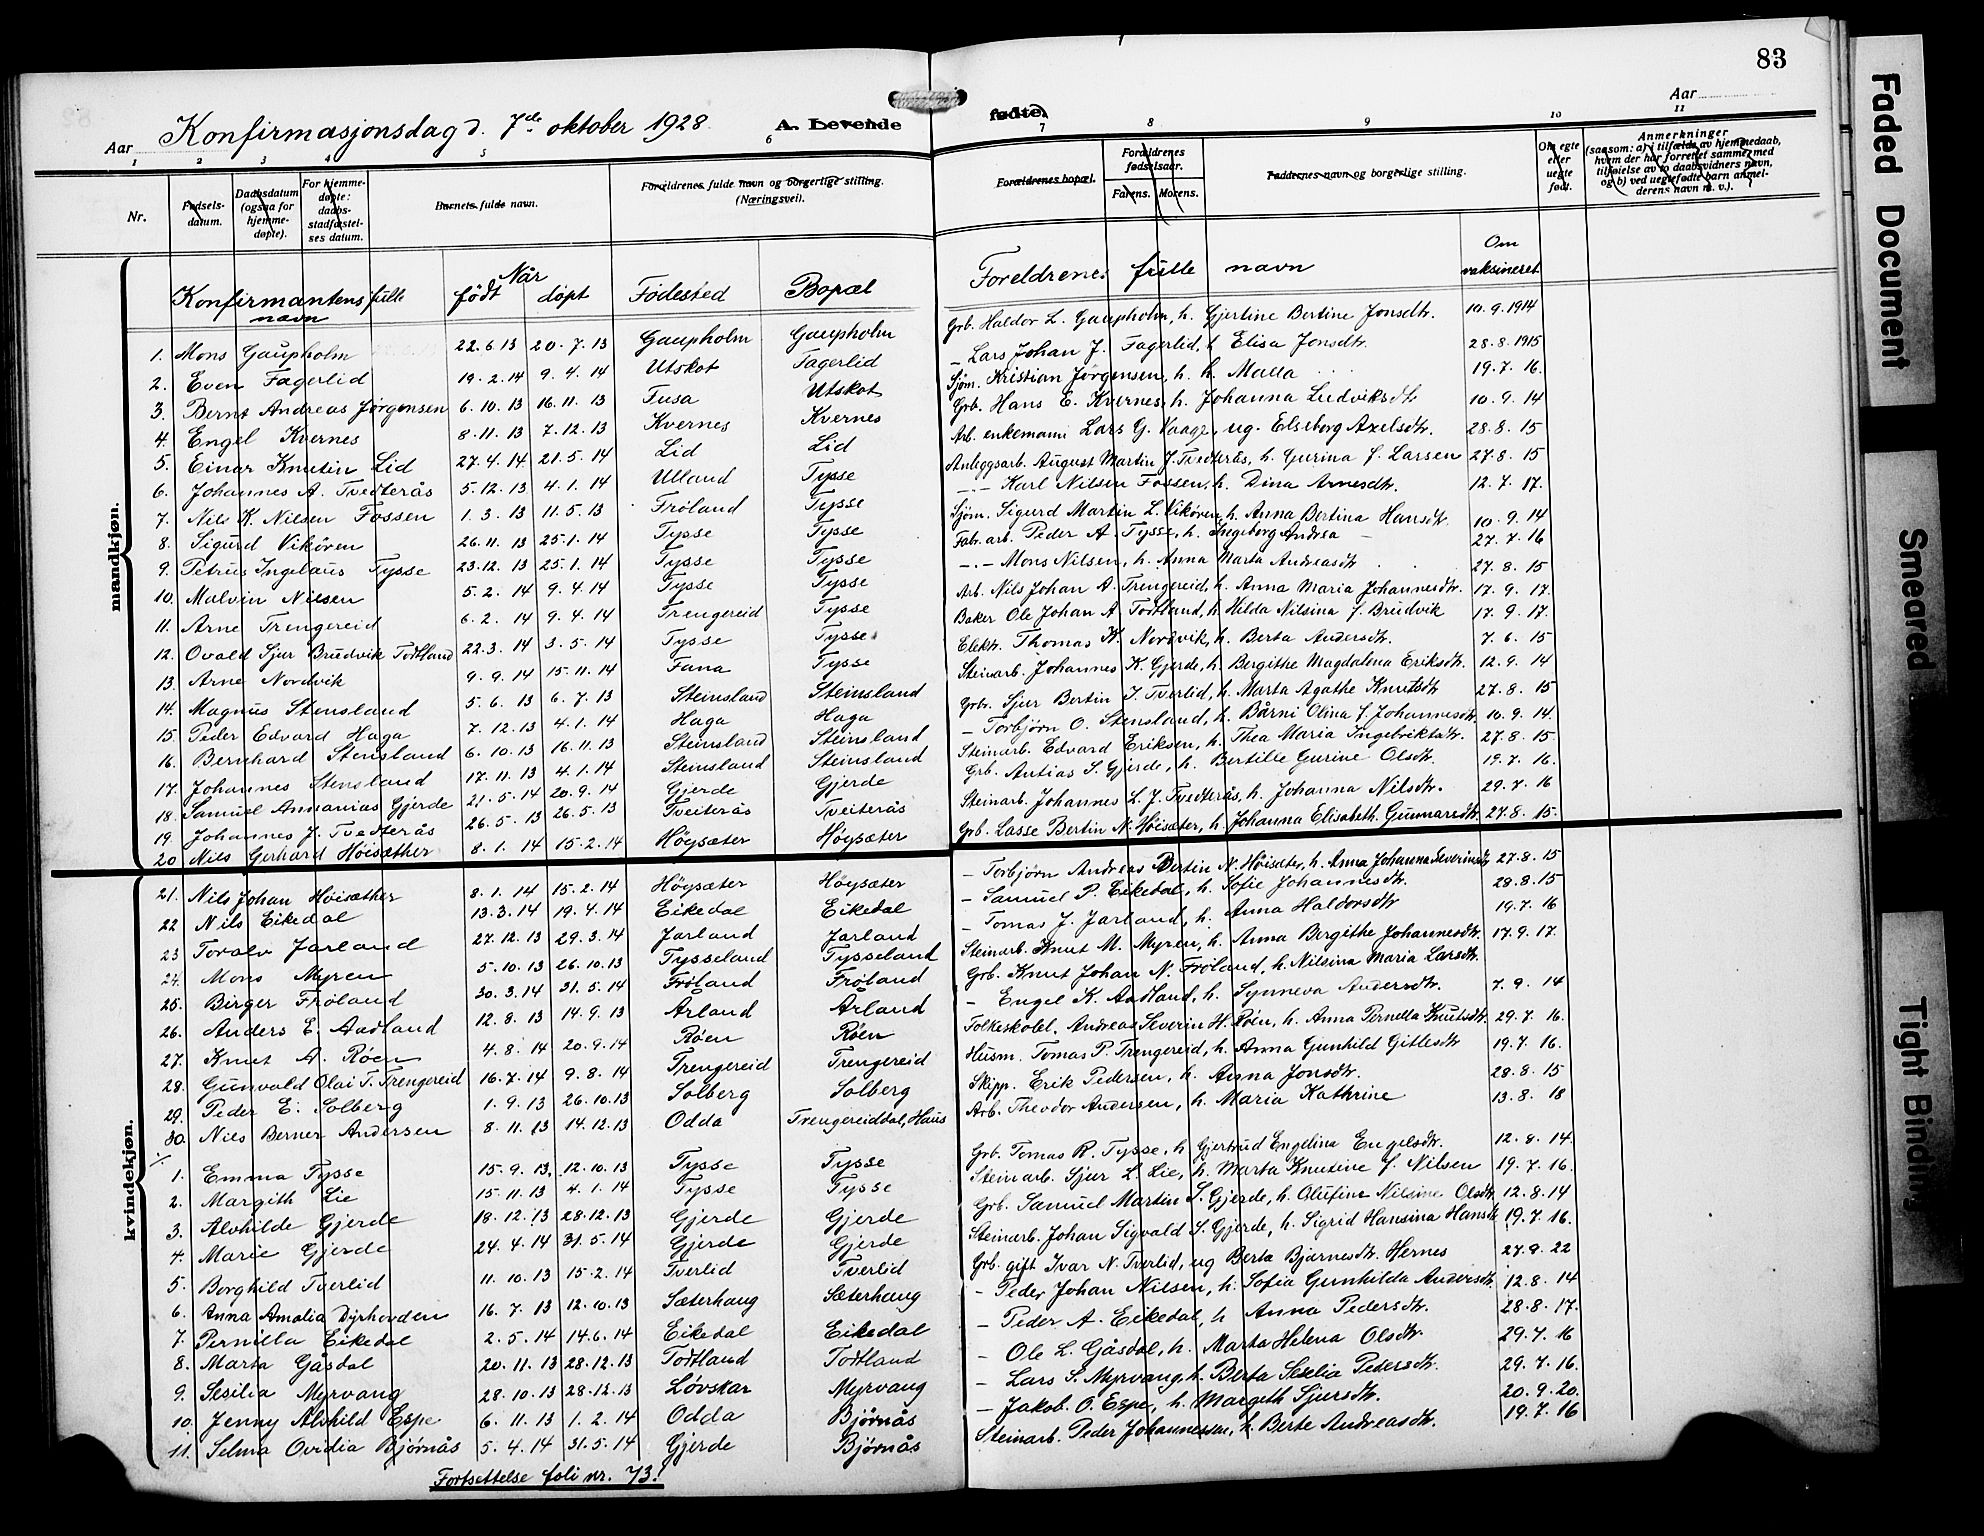 83
Konfirmasjonsdag d. 7de oktober 1928.
Aar
A. Levende fødte.
Aar
1 2 3 4 5 6 7 8 9 10 11
Nr.
Fødsels-datum.
Daabsdatum (ogsaa for hjemme-døpte).
For hjemme-døpte: daabs-stadfæstel-ses datum.
Barnets fulde navn.
Forældrenes fulde navn og borgerlige stilling. (Næringsvei).
Forældrenes bopæl.
Forældrenes fødselsaar.
Farens. Morens.
Faddernes navn og borgerlige stilling.
Om egte eller uegte født.
Anmerkninger (saasom: a) i tilfælde av hjemmedaab, hvem der har forrettet samme med tilføielse av to daabsvidners navn, og b) ved uegtefødte barn anmel-derens navn m. v.).
Konfirmantens fulle navn
Når født døpt
Fødested
Bopæl
Foreldrenes fulle navn
Om vaksineret
mandkjøn.
1. Mons Gaupholm 22.6.13 20.7.13 Gaupholm Gaupholm Grb. Haldor L. Gaupholm, h. Gjertine Bertine Jonsdtr. 10.9.1914
2. Even Fagerlid 19.2.14 9.4.14 Utskot Fagerlid – Lars Johan J. Fagerlid, h. Elisa Jonsdtr. 28.8.1915
3. Bernt Andreas Jørgensen 6.10.13 16.11.13 Fusa Utskot Sjøm. Kristian Jørgensen, h. h. Malla 19.7.16.
4. Engel Kvernes 8.11.13 7.12.13 Kvernes Kvernes Grb. Hans E. Kvernes, h. Johanna Ludviksdtr 10.9.14
5. Einar Knutin Lid 27.4.14 21.5.14 Lid Lid Arb. enkemann Lars G. Vaage, ug. Elseborg Axelsdtr. 28.8.15
6. Johannes A. Tvedterås 5.12.13 4.1.14 Ulland Tysse Anleggsarb. August Martin J. Tvedterås, h. Gurina f. Larsen 27.8.15
7. Nils K. Nilsen Fossen 1.3.13 11.5.13 Frøland Tysse –"– Karl Nilsen Fossen, h. Dina Arnesdtr. 12.7.17.
8. Sigurd Vikøren 26.11.13 25.1.14 Tysse Tysse Sjøm. Sigurd Martin L. Vikøren, h. Anna Bertina Hansdtr 10.9.14
9. Petrus Ingelaus Tysse 23.12.13 25.1.14 Tysse Tysse Fabr.arb. Peder A. Tysse, h. Ingeborg Andrea – 27.7.16
10. Malvin Nilsen 5.2.14 9.4.14 Tysse Tysse –"– Mons Nilsen, h. Anna Marta Andreasdtr 27.8.15
11. Arne Trengereid 6.2.14 9.4.14 Trengereid Tysse Arb. Nils Johan A. Trengereid, h. Anna Maria Johannesdtr. 17.9.17.
12. Ovald Sjur Brudvik Todtland 22.3.14 3.5.14 Tysse Tysse Baker Ole Johan A. Todtland, h. Hilda Nilsina f. Brudvik 17.9.17.
13. Arne Nordvik 9.9.14 15.11.14 Fana Tysse Elektr. Thomas K. Nordvik, h. Berta Andersdtr. 7.6.15
14. Magnus Stensland 5.6.13 6.7.13 Steinsland Steinsland Steinarb. Johannes K. Gjerde, h. Bergithe Magdalena Eriksdtr. 12.9.14
15. Peder Edvard Haga 7.12.13 4.1.14 Haga Haga Grb. Sjur Bertin J. Tverlid, h. Marta Agathe Knutsdtr 27.8.15
16. Bernhard Stensland 6.10.13 16.11.13 Steinsland Steinsland – Torbjørn O. Stensland, h. Bårni Olina f. Johannesdtr. 10.9.14.
17. Johannes Stensland 17.11.13 4.1.14 Steinsland Steinsland Steinarb. Edvard Eriksen, h. Thea Maria Ingebriktsdtr. 27.8.15
18. Samuel Annanias Gjerde 21.5.14 20.9.14 Gjerde Gjerde Grb. Antias S. Gjerde, h. Bertille Gurine Olsdtr. 19.7.16.
19. Johannes J. Tvedterås 26.5.13 26.5.13 Tveiterås Tveiterås Steinarb. Johannes L. J. Tvedterås, h. Johanna Nilsdtr. 29.7.16
20 Nils Gerhard Høisæther 8.1.14 15.2.14 Høysæter Høysæter Grb. Lasse Bertin N. Høisæter, h. Johanna Elisabeth Gunnarsdtr. 27.8.15.
21. Nils Johan Høisæther 8.1.14 15.2.14 Høysæter Høysæter – Torbjørn Andreas Bertin N. Høisæter, h. Anna Johanna Severinsdtr 27.8.15
22 Nils Eikedal 13.3.14 19.4.14 Eikedal Eikedal – Samuel P. Eikedal, h. Sofie Johannesdtr. 28.8.15
23 Toralv Jarland 27.12.13 29.3.14 Jarland Jarland – Tomas J. Jarland, h. Anna Haldorsdtr 19.7.16
24. Mons Myren 5.10.13 26.10.13 Tysseland Tysseland Steinarb. Knut M. Myren, h. Anna Birgithe Johannesdtr. 17.9.17.
25. Birger Frøland 30.3.14 31.5.14 Frøland Frøland Grb. Knut Johan N. Frøland, h. Nilsina Maria Larsdtr.
26. Anders E. Aadland 12.8.13 14.9.13 Årland Årland – Engel K. Aadland, h. Synneva Andersdtr. 7.9.14
27. Knut A. Røen 4.8.14 20.9.14 Røen Røen Folkeskolel. Andreas Severin H. Røen, h. Anna Pernella Knutsdtr. 29.7.16.
28. Gunvald Olai T. Trengereid 16.7.14 9.8.14 Trengereid Trengereid Husm. Tomas P. Trengereid, h. Anna Gunhild Gitlesdtr 19.7.16.
29. Peder E. Solberg 1.9.13 26.10.13 Solberg Solberg Skipp. Erik Pedersen, h. Anna Jonsdtr. 28.8.15
30. Nils Berner Andersen 8.11.13 14.12.13 Odda Trengereiddal, Haus Arb. Theodor Andersen, h. Maria Kathrine 13.8.18
kvindekjøn.
1. Emma Tysse 15.9.13. 12.10.13 Tysse Tysse Grb. Tomas R. Tysse, h. Gjertrud Engelina Engelsdtr. 12.8.14.
2. Margith Lie 15.11.13 4.1.14 Tysse Tysse Steinarb. Sjur L. Lie, h. Marta Knutine f. Nilsen 19.7.16.
3. Alvhilde Gjerde 18.12.13 28.12.13 Gjerde Gjerde Grb. Samuel Martin S. Gjerde, h. Olufine Nilsine Olsdtr. 12.8.14
4. Marie Gjerde 24.4.14 31.5.14 Gjerde Gjerde Steinarb. Johan Sigvald S. Gjerde, h. Sigrid Hansina Hansdtr 19.7.16.
5. Borghild Tverlid 11.10.13 15.2.14 Tverlid Tverlid Grb. gift Ivar N. Tverlid, ug Berta Bjarnesdtr. Hernes 27.9.22
6. Anna Amalia Dyrhovden 16.7.13 12.10.13 Sæterhaug Sæterhaug – Peder Johan Nilsen, h. Sofia Gunhilda Andersdtr. 12.8.14
7. Pernilla Eikedal 2.5.14 14.6.14 Eikedal Eikedal – Peder A. Eikedal, h Anna Pedersdtr. 28.8.17.
8. Marta Gåsdal 20.11.13 28.12.13 Todtland Todtland – Ole L. Gåsdal, h. Marta Helena Olsdtr. 29.7.16
9. Sesilia Myrvang 28.10.13 28.12.13 Løvskar Myrvang – Lars S. Myrvang, h. Berta Seselia Pedersdtr. 29.7.16.
10. Jenny Alvhild Espe 6.11.13 1.2.14 Odda Bjørnås – Jakob O. Espe, h. Margith Sjursdtr. 20.9.20.
11. Selma Ovidia Bjørnås 5.4.14 31.5.14 Gjerde Bjørnås Steinarb. Peder Johannessen, h. Berte Andreasdtr. 19.7.16
Fortsettelse foli nr. 73!
Faded Document
Smeared
Tight Binding